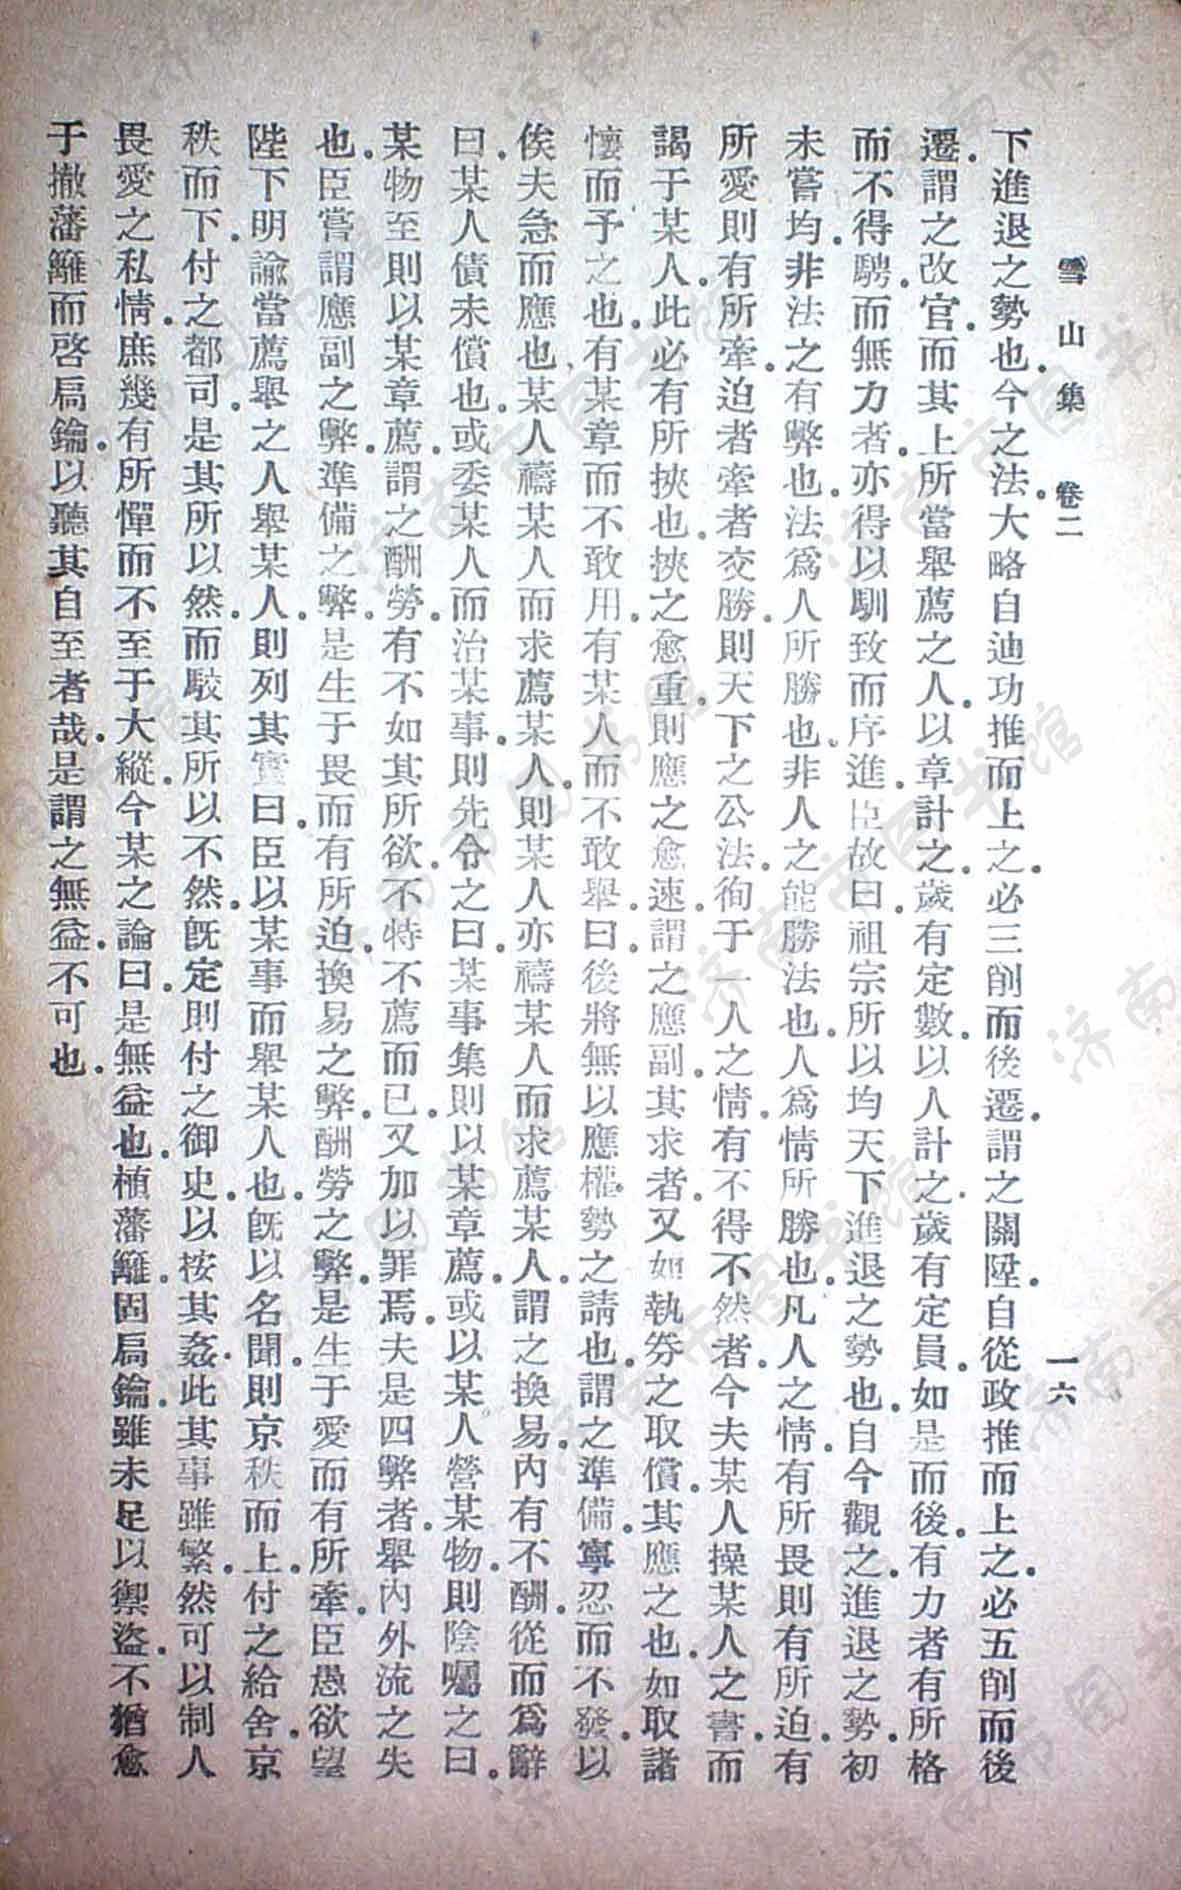 雪山集 卷二 一六
下進退之勢也。今之法。大略自迪功推而上之。必三削而後遷。謂之關陞。自從政推而上之。必五削而後
遷。謂之改官。而其上所當舉薦之人。以章計之。歲有定數。以人計之。歲有定員。如是而後。有力者有所格
而不得騁。而無力者。亦得以馴致而序進。臣故曰。祖宗所以均天下進退之勢也。自今觀之。進退之勢。初
未嘗均。非法之有弊也。法爲人所勝也。非人之能勝法也。人爲情所勝也。凡人之情。有所畏則有所迫。有
所愛則有所牽。迫者牽者交勝。則天下之公法。徇于一人之情。有不得不然者。今夫某人操某人之書。而
謁于某人。此必有所挾也。挾之愈重。則應之愈速。謂之應副。其求者。又如執券之取償。其應之也。如取諸
懷而予之也。有某章而不敢用。有某人而不敢舉。曰。後將無以應權勢之請也。謂之準備。寧忍而不發。以
俟夫急而應也。某人禱某人而求薦某人。則某人亦禱某人而求薦某人。謂之換易。內有不酬。從而爲辭
曰。某人債未償也。或委某人而治某事。則先令之曰。某事集。則以某章薦。或以某人營某物。則陰囑之曰。
某物至則以某章薦。謂之酬勞。有不如其所欲。不特不薦而已。又加以罪焉。夫是四弊者。舉內外流之失
也。臣嘗謂應副之弊。準備之弊。是生于畏而有所迫。換易之弊。酬勞之弊。是生于愛而有所牽。臣愚欲望
陛下明諭當薦舉之人。舉某人。則列其實曰。臣以某事而舉某人也。旣以名聞。則京秩而上。付之給舍。京
秩而下。付之都司。是其所以然。而駮其所以不然。旣定則付之御史。以按其姦。此其事雖繁。然可以制人
畏愛之私情。庶幾有所憚而不至于大縱。今某之論曰。是無益也。植藩籬。固扃鑰。雖未足以禦盜。不猶愈
于撤藩籬而啓扃鑰。以聽其自至者哉。是謂之無益。不可也。